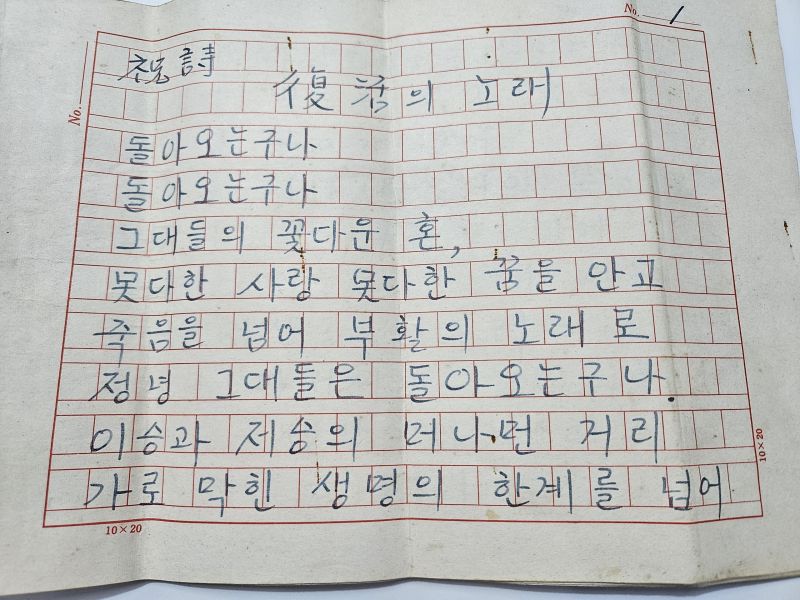 No. 1
No.
祝詩
復活의 노래
돌아오는구나
돌아오는구나
그대들의 꽃다운 혼,
못다한 사랑 못다한 꿈을 안고
죽음을 넘어 부활의 노래로
정녕 그대들은 돌아오는구나.
이승과 저승의 머나먼 거리
가로 막힌 생명의 한계를 넘어
10×20
10×20